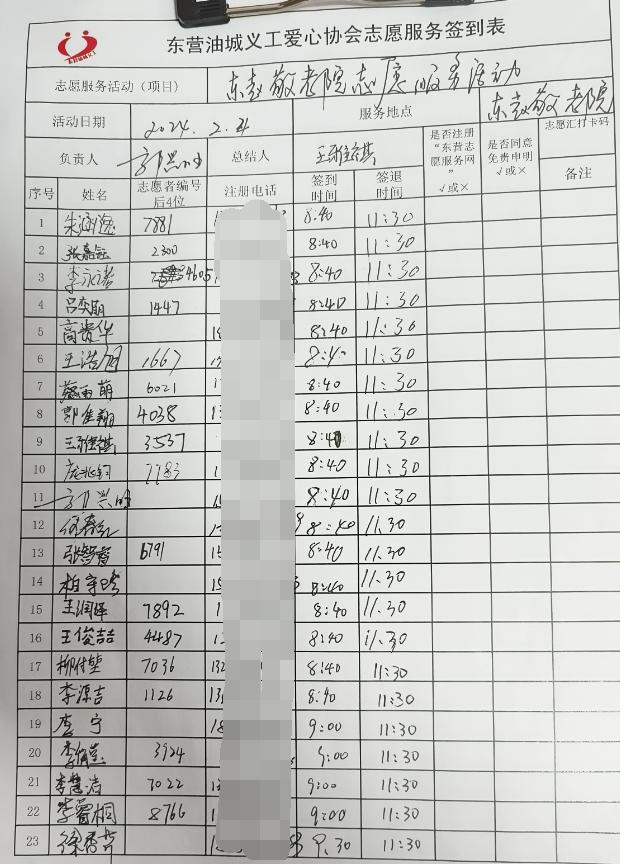 东营油城义工爱心协会志愿服务签到表
志愿服务活动（项目） 东赵敬老院志愿服务活动
活动日期 2024.2.4 服务地点 东赵敬老院
负责人 总结人 王雅祺 是否注册“东营志愿服务网”√或× 是否同意免责申明√或× 志愿汇打卡码
序号 姓名 志愿者编号后4位 注册电话 签到时间 签退时间 备注
1 朱涵逸 7881 8:40 11:30
2 张嘉 2300 8:40 11:30
3 李永诺 4605 8:40 11:30
4 吕奕朋 1447 8:40 11:30
5 高贵华 8:40 11:30
6 王浩 1667 8:40 11:30
7 蔡雨萌 6021 8:40 11:30
8 郭佳翔 4038 8:40 11:30
9 王雅祺 3537 8:40 11:30
10 庞兆钧 7783 8:40 11:30
11 8:40 11:30
12 8:40 11.30
13 张智睿 6791 8:40 11.30
14 柏宇晗 8:40 11.30
15 王润泽 7892 8:40 11.30
16 王俊喆 4487 8:40 11.30
17 柳付堃 7036 132 8:40 11:30
18 李源吉 1126 8:40 11:30
19 李宁 18 9:00 11:30
20 3924 9:00 11:30
21 李慧洁 7022 9:00 11:30
22 李蜀桐 8766 9:00 11:30
23 徐秀芳 9.30 11:30